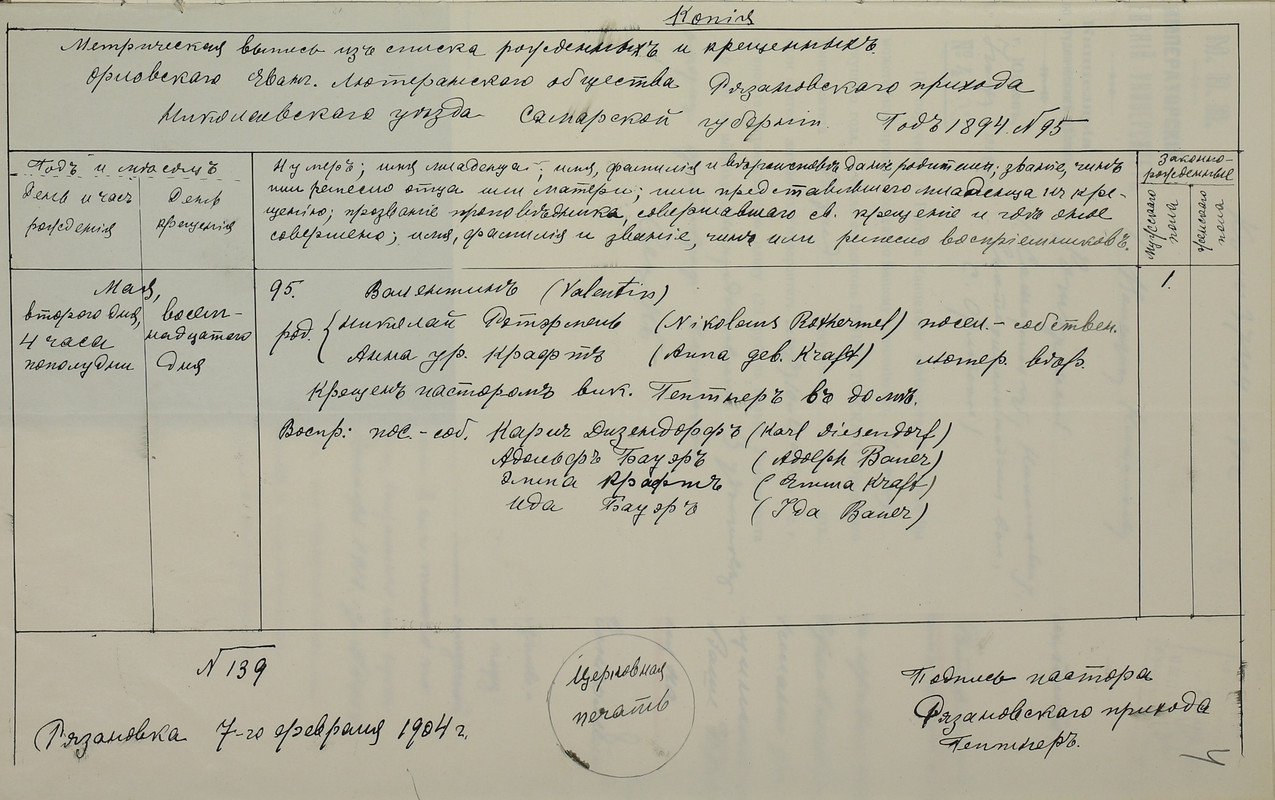 Копія
Метрическая выпись изъ списка рожденныхъ и крещенныхъ
Орловскаго Еванг. Лютеранскаго общества Рязановскаго прихода
Николаевскаго уѣзда Самарской губерніи. Годъ 1894 №95
Годъ и мѣсяцъ
День и часъ рожденія
День крещенія
Нумеръ; имя младенца; имя, фамилія и вѣроисповѣданіе родителей; званіе, чинъ
или ремесло отца или матери; или представлявшаго младенца къ кре-
щенію; прозваніе проповѣдника, совершавшаго св. крещеніе и гдѣ оное
совершено; имя, фамилія и званіе, чинъ или ремесло воспріемниковъ.
Законно-
рожденные
Мужскаго пола
Женскаго пола
Мая,
второго дня,
4 часа
пополудни
восем-
надцатаго
дня
95. Валентинъ (Valentin)
род. { Николай Ротэрмель (Nikolaus Rothermel) посел.-собствен.
Анна ур. Крафтъ (Anna geb. Kraft) лютер. вѣр.
Крещенъ пасторомъ вик. Гептнеръ въ домѣ.
Воспр: пос.-соб. Карлъ Дизендорфъ (Karl Diesendorf)
Адольфъ Бауэръ (Adolph Bauer)
Эмма Крафтъ (Emma Kraft)
Ида Бауэръ (Ida Bauer)
1.
№139
Рязановка 7-го февраля 1904 г.
Церковная
печать
Подпись пастора
Рязановскаго прихода
Гептнеръ.